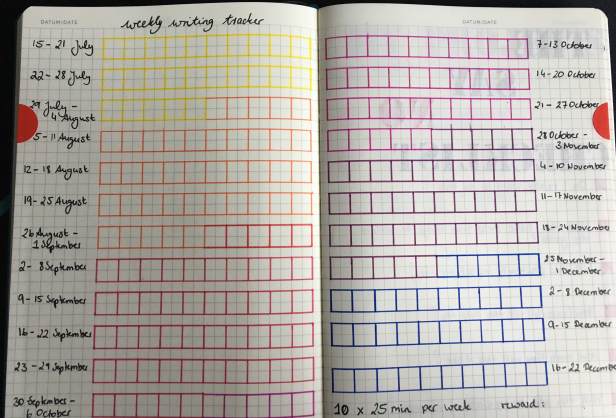 DATUM/DATE
weekly writing tracker
15 - 21 July
22 - 28 July
29 July -
4 August
5 - 11 August
12 - 18 August
19 - 25 August
26 August -
1 September
2 - 8 September
9 - 15 September
16 - 22 September
23 - 29 September
30 September -
6 October
DATUM/DATE
7-13 October
14 - 20 October
21 - 27 October
28 October -
3 November
4 - 10 November
11 - 17 November
18 - 24 November
25 November -
1 December
2 - 8 December
9 - 15 December
16 - 22 December
10 x 25 min per week reward: